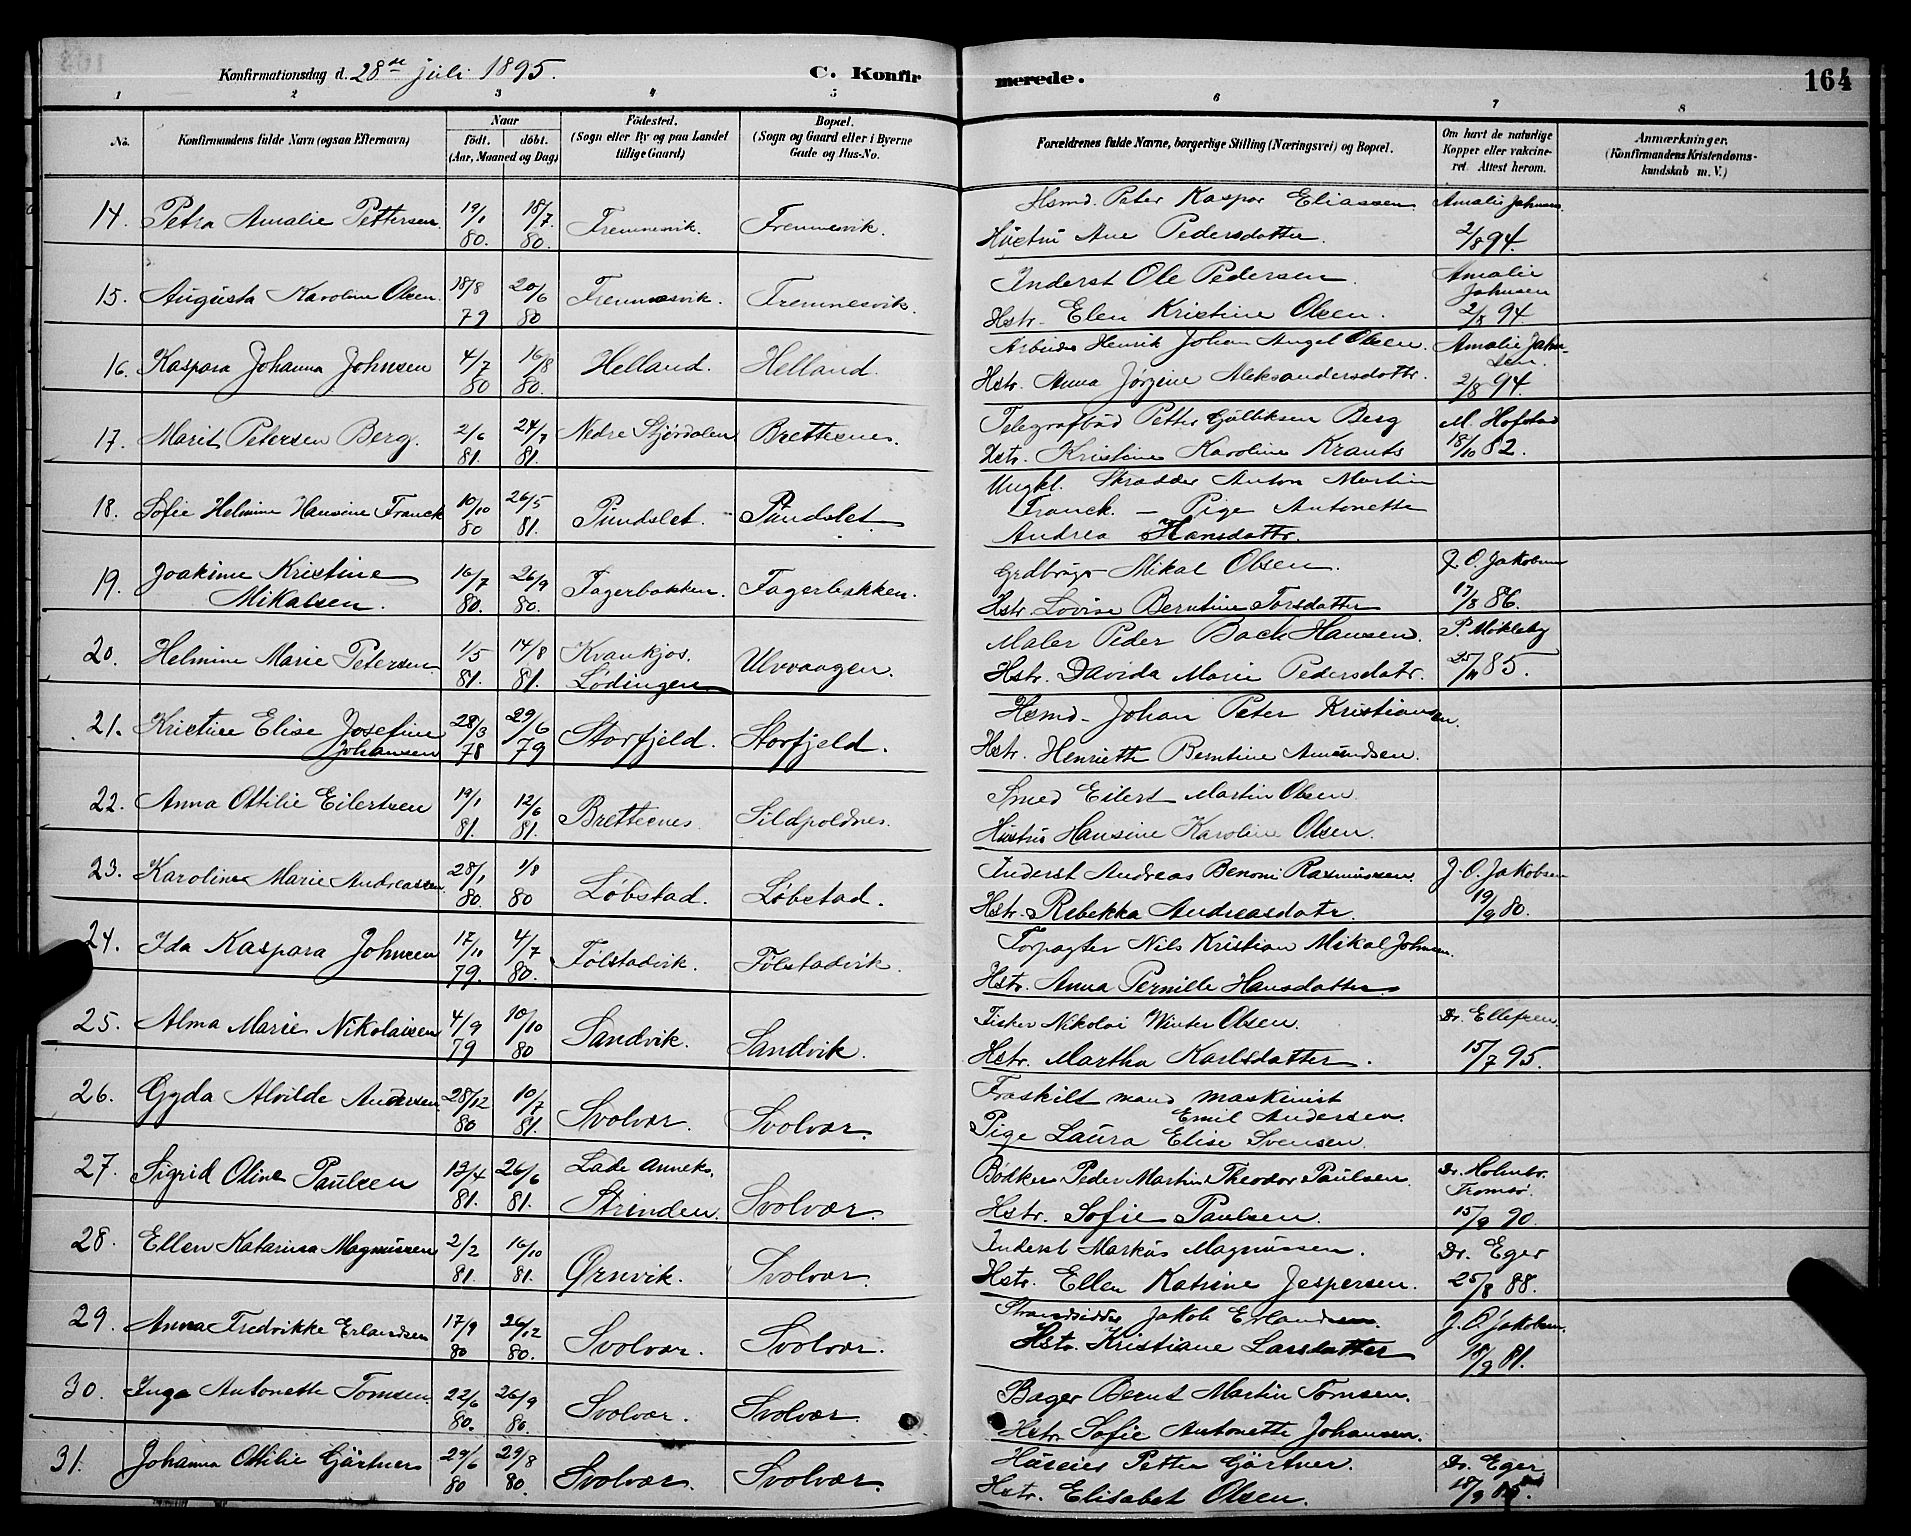 Konfirmationsdag d. 28de juli 1895.
C. Konfirmerede.
164
1 2 3 4 5 6 7 8
No.
Konfirmandens fulde Navn (ogsaa Efternavn)
Naar
Født. døbt.
(Aar, Maaned og Dag)
Fødested.
(Sogn eller By og paa Landet
tillige Gaard)
Bopæl.
(Sogn og Gaard eller i Byerne
Gade og Hus-No.
Forældrenes fulde Navne, borgerlige Stilling (Næringsvei) og Bopæl.
Om havt de naturlige
Kopper eller vakcine-
ret. Attest herom.
Anmærkninger.
(Konfirmandens Kristendoms-
kundskab m. V.)
14. Petra Amalie Pettersen 19/1 80. 18/7 80. Fremnesvik. Fremnesvik.
Hsmd. Peter Kaspar Eliassen. Amalie Johnsen
Hustru Ane Pedersdatter. 2/8 94.
15. Augusta Karoline Olsen. 18/8 79 20/6 80 Fremnesvik. Fremnesvik.
Inderst Ole Pedersen. Amalie
Johnsen
Hstr. Elen Kristine Olsen. 2/8 94.
16. Kaspara Johanna Johnsen 4/7 80 16/8 80. Helland. Helland.
Arbeider Henrik Johan Angel Olsen. Amalie John-
sen.
Hstr. Anna Jørgine Aleksandersdattr. 2/8 94.
17. Marit Petersen Berg. 2/6 81. 24/7 81. Nedre Stjørdalen Brettesnes.
Telegrafbud Petter Gulliksen Berg M. Hofstad
Hstr. Kristine Karoline Krants 18/10 82.
18. Sofie Helmine Hansine Franck 10/10 80 26/5 81. Pundslet. Pundslet.
Ungkl. Skrædder Anton Martin
Franck. — Pige Antonette
Andrea Hansdattr.
19. Joakime Kristine
Mikalsen. 16/7 80. 26/9 80. Fagerbakken. Fagerbakken.
Grdbruger Mikal Olsen. J. O. Jakobsen
Hstr. Lovise Berntine Torsdatter 17/8 86.
20. Helmine Marie Petersen 1/5 81. 14/8 81. Kvankjos.
Lødingen Ulvvaagen.
Maler Peder Bach Hansen. P. Mokleby
Hstr. Davida Marie Pedersdatr. 25/11 85.
21. Kristine Elise Josefine
Johansen 28/3 78 29/6 79 Storfjeld. Storfjeld.
Hsmd. Johan Peter Kristiansen.
Hstr. Henriette Berntine Amundsen.
22. Anna Ottilie Eilertsen 19/1 81. 12/6 81. Brettesnes. Sildpoldnes.
Smed Eilert Martin Olsen
Hustru Hansine Karoline Olsen.
23. Karoline Marie Andreassen 28/1 80. 1/8 80 Løbstad. Løbstad.
Inderst Andreas Benoni Rasmussen. J. O. Jakobsen
Hstr. Rebekka Andreasdatr. 19/9 80.
24. Ida Kaspara Johnsen 17/10 79. 4/7 80. Følstadvik. Følstadvik.
Forpagter Nils Kristian Mikal Johnsen.
Hstr. Anna Pernille Hansdatter
25. Alma Marie Nikolaisen 4/9 79 10/10 80 Sandvik. Sandvik.
Fisker Nikolai Winter Olsen. Dr. Ellefsen.
Hstr. Martha Karlsdatter. 15/7 95.
26. Gyda Alvilde Andersen 28/12 80 10/7 81. Svolvær. Svolvær.
Fraskilt mand maskinist
Emil Andersen
Pige Laura Elise Svensen.
27. Sigrid Oline Paulsen 13/4 81. 26/6 81. Lade Anneks.
Strinden. Svolvær.
Bødker Peder Martin Theodor Paulsen. Dr. Holmbo.
Tromsø.
Hstr. Sofie Paulsen. 15/9 90.
28. Ellen Katarina Magnussen 2/2 81. 16/10 81. Ørnvik. Svolvær.
Inderst Markus Magnussen. Dr. Eger
Hstr. Ellen Katrine Jespersen. 25/8 88.
29. Anna Fredrikke Erlandsen 17/9 80 26/12 80. Svolvær. Svolvær.
Strandsidder Jakob Erlandsen. J. O. Jakobsen.
Hstr. Kristiane Larsdatter 18/9 81.
30. Inga Antonette Tomsen 22/6 80. 26/9 80. Svolvær. Svolvær.
Bager Bernt Martin Tomsen.
Hstr. Sofie Antonette Johansen.
31. Johanna Ottilie Gärtner 29/6 80 29/8 80. Svolvær. Svolvær.
Huseier Petter Gärtner. Dr. Eger
Hstr. Elisabet Olsen. 18/9